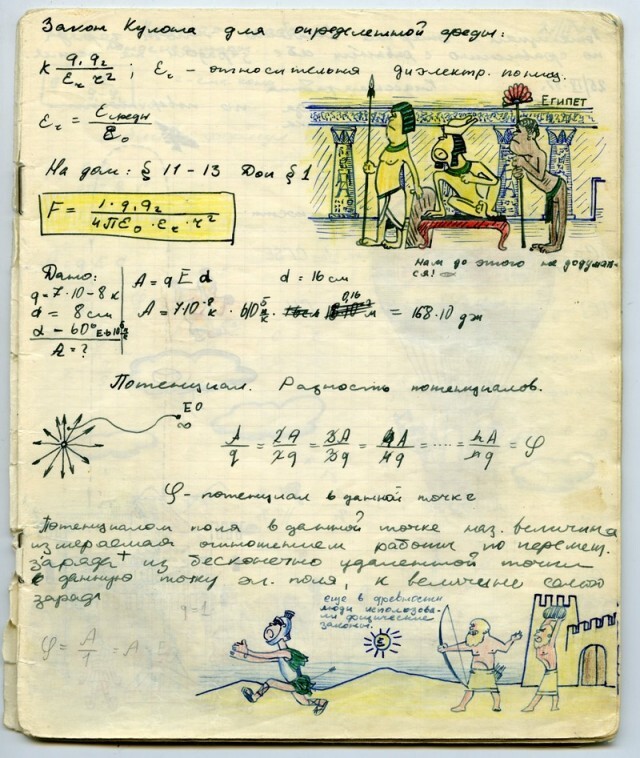 Закон Кулона для определенной среды:
K q₁ q₂ / εᵣ r² ; εᵣ – относительная диэлектр. пониц.
εᵣ = εсреды / ε₀
ЕГИПЕТ
На дом: § 11 – 13 Доп § 1
F = 1·q₁q₂ / 4πε₀·εᵣ·r²
нам до этого не додумат-
ся!
Дано:
q = 7·10-8 к
d = 8 см
α – 60°
A = ?
A = q E d d = 16 см
= 168·10 дж
Потенциал. Разность потенциалов.
E0
∞
A/q = 2A/2q = 3A/3q = 4A/4q = ..... = nA/nq = φ
φ – потенциал в данной точке
Потенциалом поля в данной точке наз. величина
измеряемая отношением работы по перемещ.
заряда + из бесконечно удаленной точки
в данную точку эл. поля, к величине самого
заряда
q=1
еще в древности
люди использова-
ли физические
законы.
φ = A/1 = A